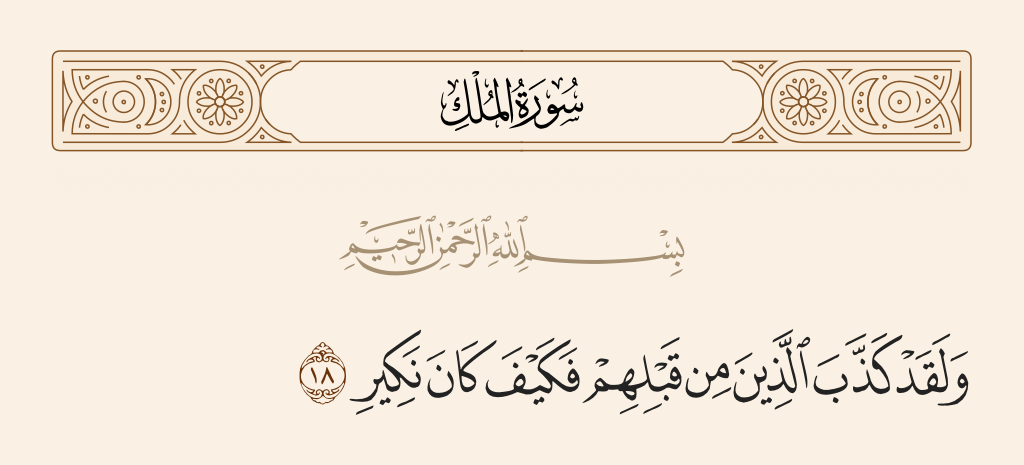 سُورَةُ الْمُلْكِ
بِسْمِ ٱللَّهِ ٱلرَّحْمَٰنِ ٱلرَّحِيمِ
وَلَقَدْ كَذَّبَ ٱلَّذِينَ مِن قَبْلِهِمْ فَكَيْفَ كَانَ نَكِيرِ ١٨